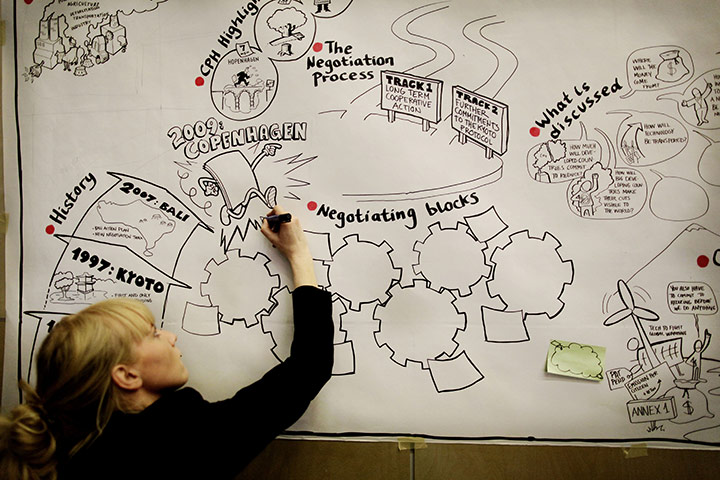 AGRICULTURE
DEFORESTATION
TRANSPORTATION
INDUSTRY
CPH Highligh
7
HOPENHAGEN
The
Negotiation
Process
TRACK 1
LONG TERM
COOPERATIVE
ACTION
TRACK 2
FURTHER
COMMITMENTS
TO THE KYOTO
PROTOCOL
What is
discussed
WHERE
WILL THE
MONEY
COME
FROM?
HOW MUCH
WILL DEVE-
LOPED COUN-
TRIES COMMIT
TO REDUCE?
HOW WILL
TECHNOLOGY
BE TRANSFERED?
HOW WILL
BIG DEVE-
LOPING COUN-
TRIES MAKE
THEIR CUTS
VISIBLE TO
THE WORLD?
2009:
COPENHAGEN
History
2007: BALI
- BALI ACTION PLAN
- NEW NEGOTIATION TRACK
1997: KYOTO
- FIRST AND ONLY
Negotiating blocks
YOU ALSO HAVE
TO COMMIT TO
REDUCING BEFORE
WE DO ANYTHING
TECH TO FIGHT
GLOBAL WARMING
EMISSION PER
CITIZEN
ANNEX 1
$